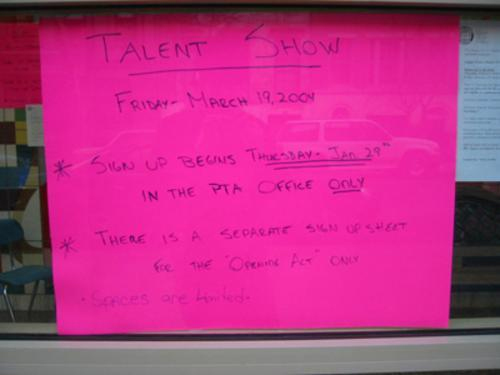 TALENT SHOW
FRIDAY - MARCH 19, 2004
* SIGN UP BEGINS THURSDAY - JAN 29th
IN THE PTA OFFICE ONLY
* THERE IS A SEPARATE SIGN UP SHEET
FOR THE "OPENING ACT" ONLY
• Spaces are limited.